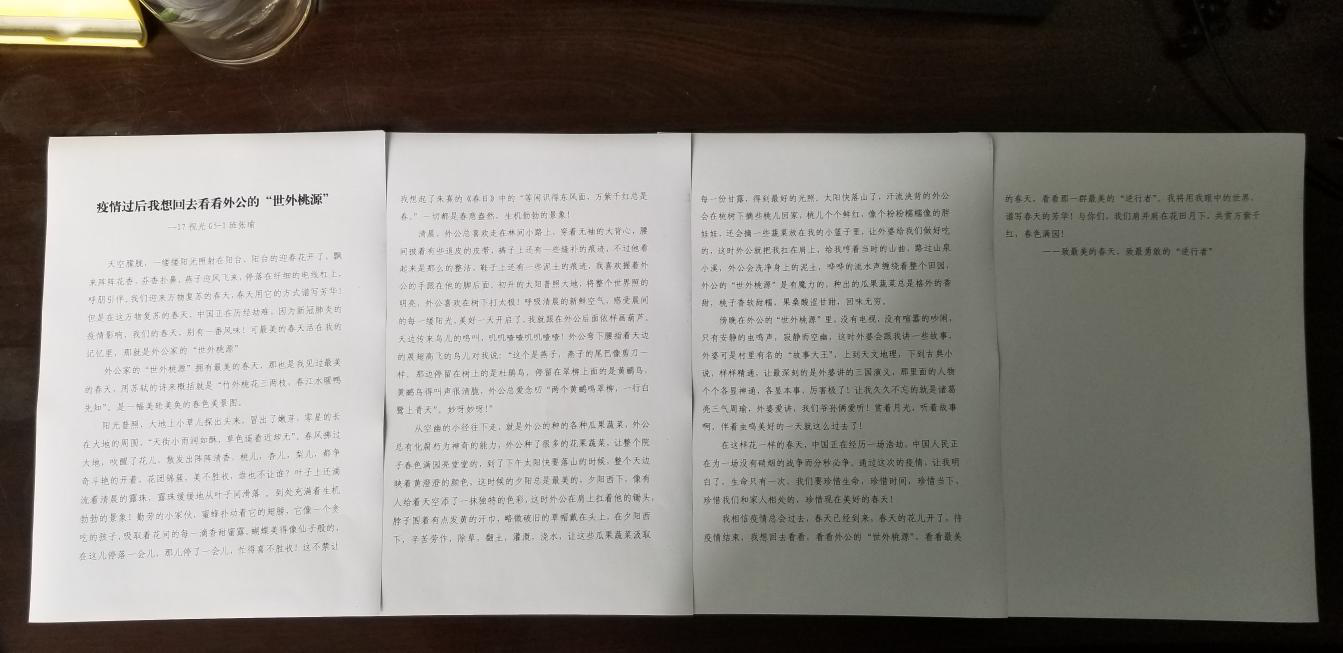 疫情过后我想回去看看外公的“世外桃源”
—17视光G5-1班张瑜
天空朦胧，一缕缕阳光照射在阳台，阳台的迎春花开了，飘
来阵阵花香，芬香扑鼻，燕子迎风飞来，停落在纤细的电线杠上，
呼朋引伴，我们迎来万物复苏的春天，春天用它的方式谱写芳华！
但是在这万物复苏的春天，中国正在历经劫难，因为新冠肺炎的
疫情影响，我们的春天，别有一番风味！可最美的春天活在我的
记忆里，那就是外公家的“世外桃源”
外公家的“世外桃源”拥有最美的春天，那也是我见过最美
的春天，用苏轼的诗来概括就是“竹外桃花三两枝，春江水暖鸭
先知”。是一幅美轮美奂的春色美景图。
阳光普照，大地上小草儿探出头来，冒出了嫩芽，零星的长
在大地的周围，“天街小雨润如酥，草色遥看近却无”。春风拂过
大地，吹醒了花儿，散发出阵阵清香，桃儿，杏儿，梨儿，都争
奇斗艳的开着，花团锦簇，美不胜收，谁也不让谁？叶子上还滴
流着清晨的露珠，露珠缓缓地从叶子间滑落 。到处充满着生机
勃勃的景象！勤劳的小家伙，蜜蜂扑动着它的翅膀，它像一个贪
吃的孩子，吸取着花间的每一滴香甜蜜露。蝴蝶美得像仙子般的，
在这儿停落一会儿，那儿停了一会儿，忙得喜不胜收！这不禁让
我想起了朱熹的《春日》中的“等闲识得东风面，万紫千红总是
春。”一切都是春意盎然、生机勃勃的景象！
清晨，外公总喜欢走在林间小路上，穿着无袖的大背心，腰
间披着有些退皮的皮带，裤子上还有一些缝补的痕迹，不过他看
起来是那么的整洁。鞋子上还有一些泥土的痕迹，我喜欢握着外
公的手跟在他的脚后面，初升的太阳普照大地，将整个世界照的
明亮，外公喜欢在树下打太极！呼吸清晨的新鲜空气，感受晨间
的每一缕阳光，美好一天开启了，我就跟在外公后面依样画葫芦。
天边传来鸟儿的鸣叫，叽叽喳喳叽叽喳喳！外公弯下腰指着天边
的展翅高飞的鸟儿对我说：“这个是燕子，燕子的尾巴像剪刀一
样。那边停留在树上的是杜鹃鸟，停留在翠柳上面的是黄鹂鸟，
黄鹂鸟得叫声很清脆，外公总爱念叨“两个黄鹂鸣翠柳，一行白
鹭上青天”。妙呀妙呀！”
从空幽的小径往下走，就是外公的种的各种瓜果蔬菜，外公
总有化腐朽为神奇的能力，外公种了很多的花果蔬菜，让整个院
子春色满园亮堂堂的，到了下午太阳快要落山的时候，整个天边
映着黄澄澄的颜色，这时候的夕阳总是最美的，夕阳西下，像有
人给着天空添了一抹独特的色彩，这时外公在肩上扛着他的锄头，
脖子围着有点发黄的汗巾，略微破旧的草帽戴在头上，在夕阳西
下，辛苦劳作，除草，翻土，灌溉，浇水，让这些瓜果蔬菜汲取
每一份甘露，得到最好的光照。太阳快落山了，汗流浃背的外公
会在桃树下摘些桃儿回家，桃儿个个鲜红，像个粉粉糯糯像的胖
娃娃，还会摘一些蔬菜放在我的小篮子里，让外婆给我们做好吃
的，这时外公就把我扛在肩上，给我哼着当时的山曲，路过山泉
小溪，外公会洗净身上的泥土，哗哗的流水声缠绕着整个田园，
外公的“世外桃源”是有魔力的，种出的瓜果蔬菜总是格外的香
甜，桃子香软甜糯，果桑酸涩甘甜，回味无穷。
傍晚在外公的“世外桃源”里，没有电视，没有喧嚣的吵闹，
只有安静的虫鸣声，寂静而空幽，这时外婆会跟我讲一些故事，
外婆可是村里有名的“故事大王”，上到天文地理，下到古典小
说，样样精通，让最深刻的是外婆讲的三国演义，那里面的人物
个个各显神通，各显本事，厉害极了！让我久久不忘的就是诸葛
亮三气周瑜，外婆爱讲，我们爷孙俩爱听！赏着月光，听着故事
啊，伴着虫鸣美好的一天就这么过去了！
在这样花一样的春天，中国正在经历一场浩劫，中国人民正
在为一场没有硝烟的战争而分秒必争，通过这次的疫情，让我明
白了，生命只有一次，我们要珍惜生命，珍惜时间，珍惜当下，
珍惜我们和家人相处的，珍惜现在美好的春天！
我相信疫情总会过去，春天已经到来，春天的花儿开了，待
疫情结束，我想回去看看，看看外公的“世外桃源”，看看最美
的春天，看看那一群最美的“逆行者”，我将用我眼中的世界，
谱写春天的芳华！与你们，我们肩并肩在花田月下，共赏万紫千
红，春色满园！
——致最美的春天，致最勇敢的“逆行者”